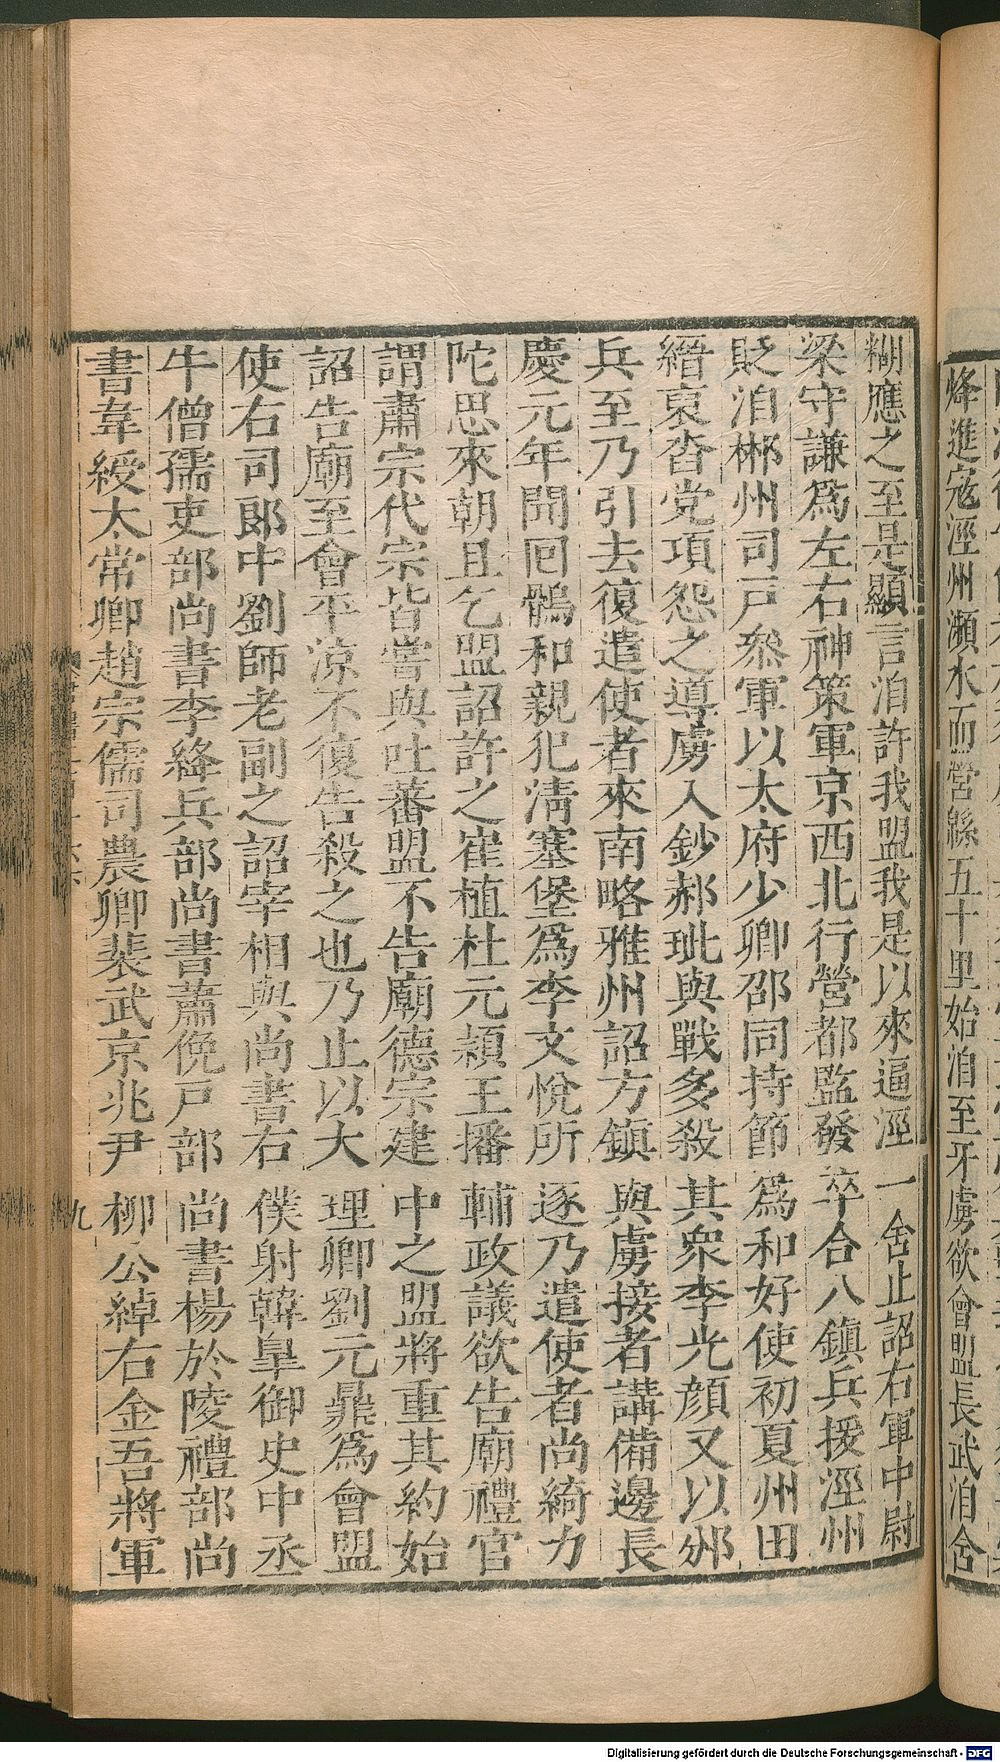 糊應之至是顯言洎許我盟我是以來逼涇一舍止詔右軍中尉
梁守謙爲左右神策軍京西北行營都監發卒合八鎮兵援涇州
貶洎郴州司戶叅軍以太府少卿邵同持節爲和好使初夏州田
縉裒沓党項怨之導虜入鈔郝玼與戰多殺其衆李光顏又以邠
兵至乃引去復遣使者來南略雅州詔方鎮與虜接者講備邊長
慶元年聞囘鶻和親犯清塞堡爲李文悅所逐乃遣使者尚綺力
陀思來朝且乞盟詔許之崔植杜元穎王播輔政議欲告廟禮官
謂肅宗代宗皆嘗與吐蕃盟不告廟德宗建中之盟將重其約始
詔告廟至會平涼不復告殺之也乃止以大理卿劉元鼎爲會盟
使右司郎中劉師老副之詔宰相與尚書右僕射韓皐御史中丞
牛僧孺吏部尚書李絳兵部尚書蕭俛戸部尚書楊於陵禮部尚
書韋綬太常卿趙宗儒司農卿裴武京兆尹柳公綽右金吾將軍
九
烽進寇涇州瀕水而營緜五十里始洎至牙虜欲會盟長武洎含
Digitalisierung gefördert durch die Deutsche Forschungsgemeinschaft - DFG